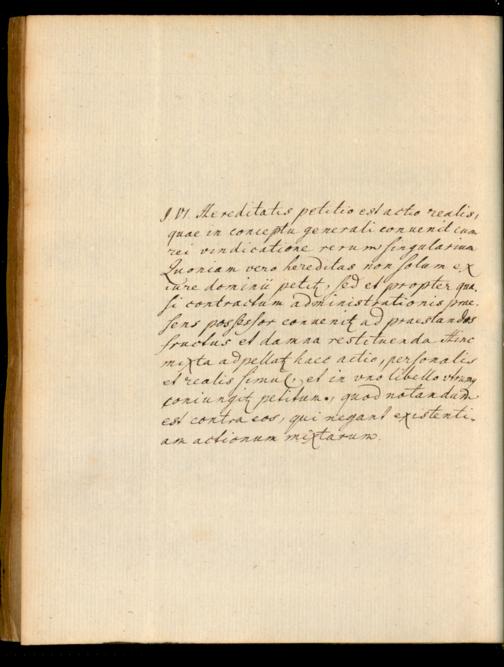 §. VI. Hereditatis petitio est actio realis,
quae in conceptu generali convenit cum
rei vindicatione rerum singularium
Quoniam vero hereditas non solum ex
iure dominii petitꝭ, sed et propter qua-
si contractum administrationis prae-
sens possessor convenitꝭ ad praestandos
fructus et damna restituenda. Hinc
mixta adpellatꝭ haec actio, personalis
et realis simul, et in vno libello vtrumqꝫ
coniungitꝭ petitum, quod notandum
est contra eos, qui negant existenti-
am actionum mixtarum.